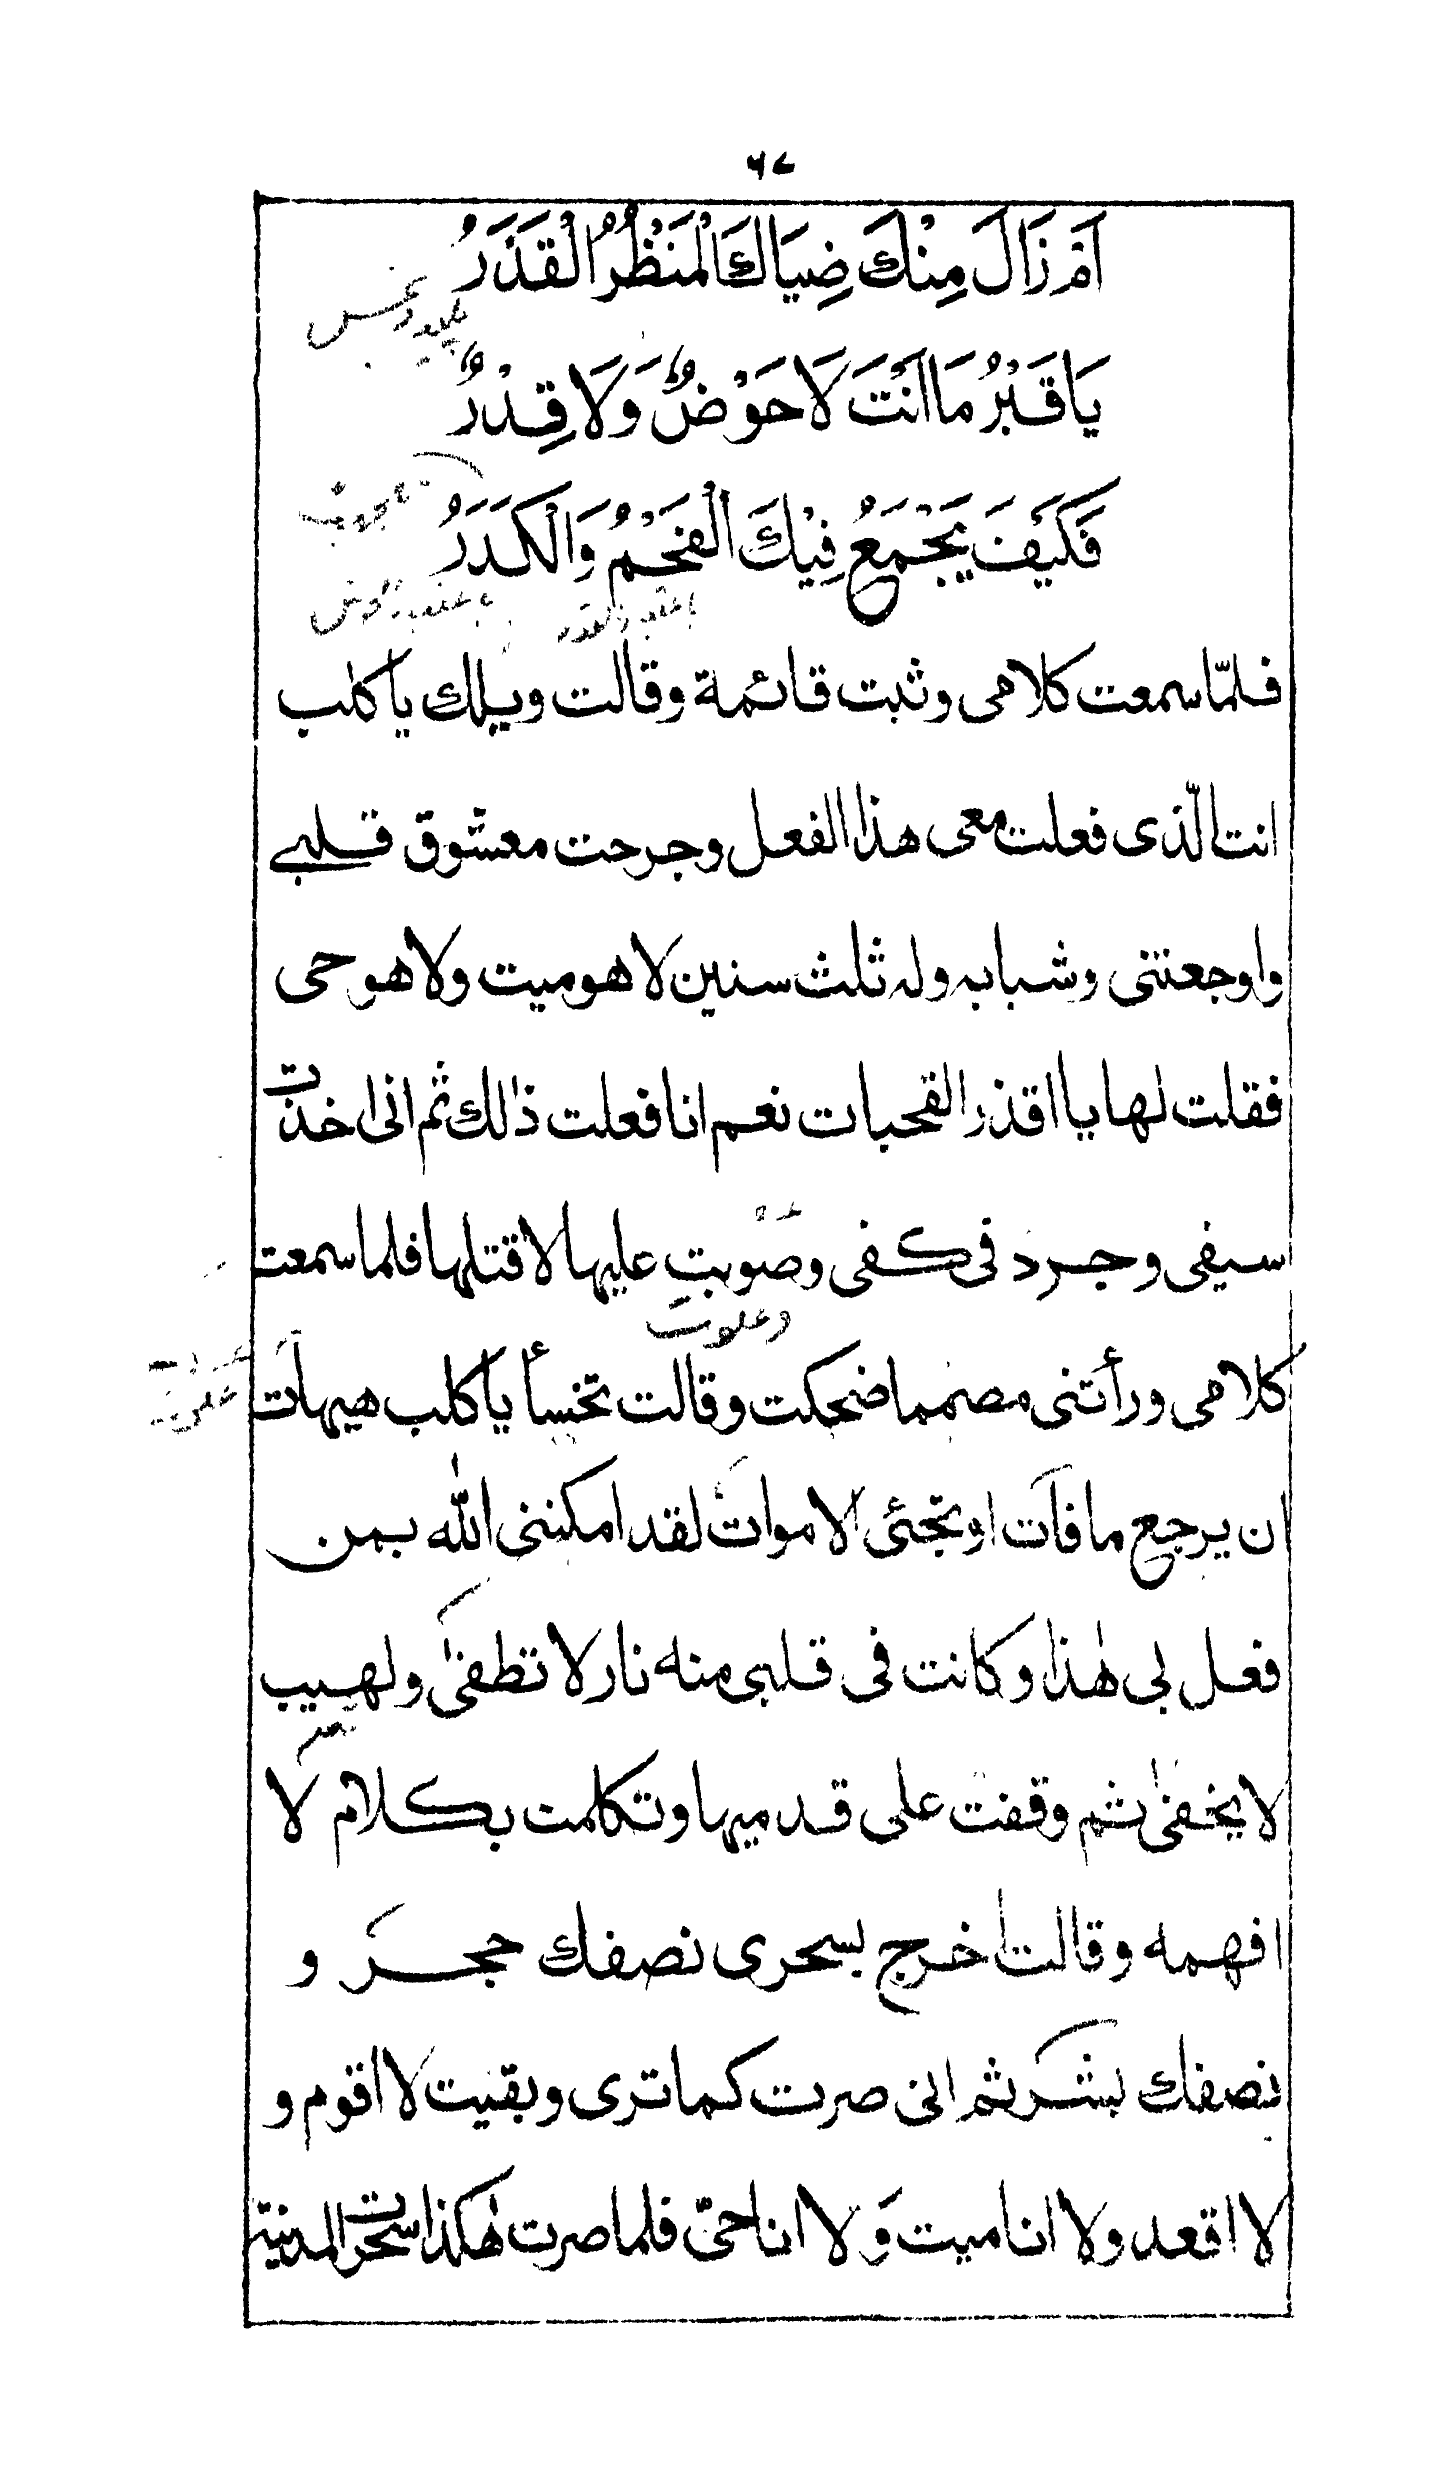 ٦٧
اَمْ زَالَ مِنْكَ ضِيَاكَ الْمَنْظُرُ الْقَذَرُ
يَا قَبْرُ مَا اَنْتَ لَا حَوْضٌ وَلَا قِدْرٌ
فَكَيْفَ يَجْمَعُ فِيْكَ الْفَحْمُ وَالْكَدَرُ
فلمّا سمعت كلامى وثبت قائمة وقالت ويلك يا كلب
انت الّذى فعلت معى هذا الفعل وجرحت معشوق قلبے
واوجعتنى وشبابه وله ثلث سنين لا هو ميت ولا هو حى
فقلت لها يا اقذر القحبات نعم انا فعلت ذالك ثم انى اخذت
سيفى وجرد فى كفى وصَوْبتِ عليها لاقتلها فلما سمعت
وعلوت
كلامى ورأتنى مصمما ضحكت وقالت تخسأ يا كلب هيهات
ان يرجع ما فات او تجئى الاموات لقد امكننى الله بمن
فعل بى هٰذا وكانت فى قلبى منه نار لا تطفىٰ ولهيب
لا يخفىٰ ثم وقفت على قدميها وتكلمت بكلام لا
افهمه وقالت اخرج بسحرى نصفك حجر و
نصفك بشر ثم انى صرت كما ترى وبقيت لا اقوم و
لا اقعد ولا انا ميت وَلا انا حىّ فلما صرت هٰكذا سحرت المدينة